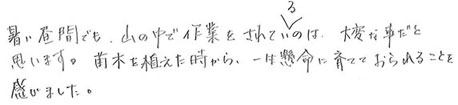 暑い昼間でも、山の中で作業をされているのは、大変な事だと
思います。苗木を植えた時から、一生懸命に育てておられることを
感じました。